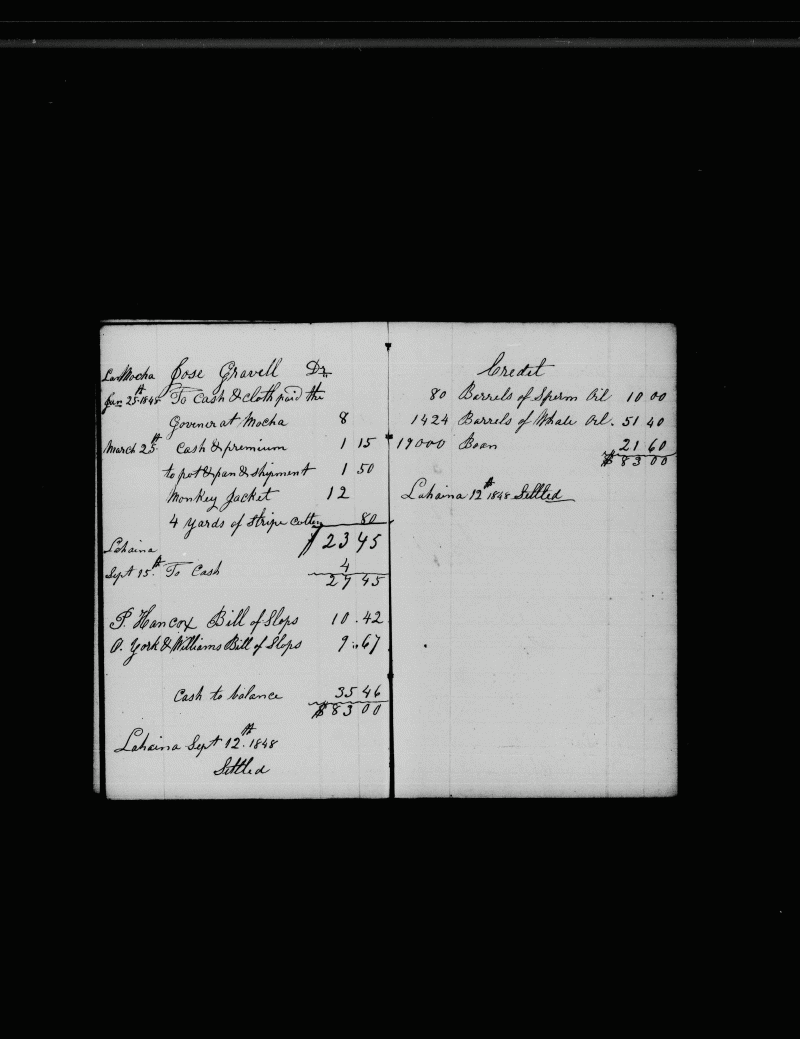 La Mocha Jose Gravell Dr
Jan 25th 1848 To Cash & cloth paid the
Goviner at Mocha 8
March 25th Cash & premium 1 15
to pot & pan & shipment 1 50
Monkey Jacket 12
4 Yards of Stripe Cotten 80
$23 45
Lahaina
Sept 15th To Cash 4
27 45
P. Hancox Bill of Slops 10.42
O. York & Williams Bill of Slops 9.67
Cash to balance 35 46
$83 00
Lahaina Sept 12th 1848
Settled
Credet
80 Barrels of Sperm Oil 10 00
1424 Barrels of Whale Oil. 51 40
19000 Boan 21 60
$83 00
Lahaina 12th 1848 Settled